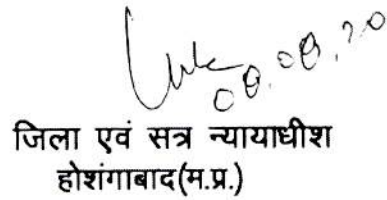 08.08.20
जिला एवं सत्र न्यायाधीश
होशंगाबाद(म.प्र.)